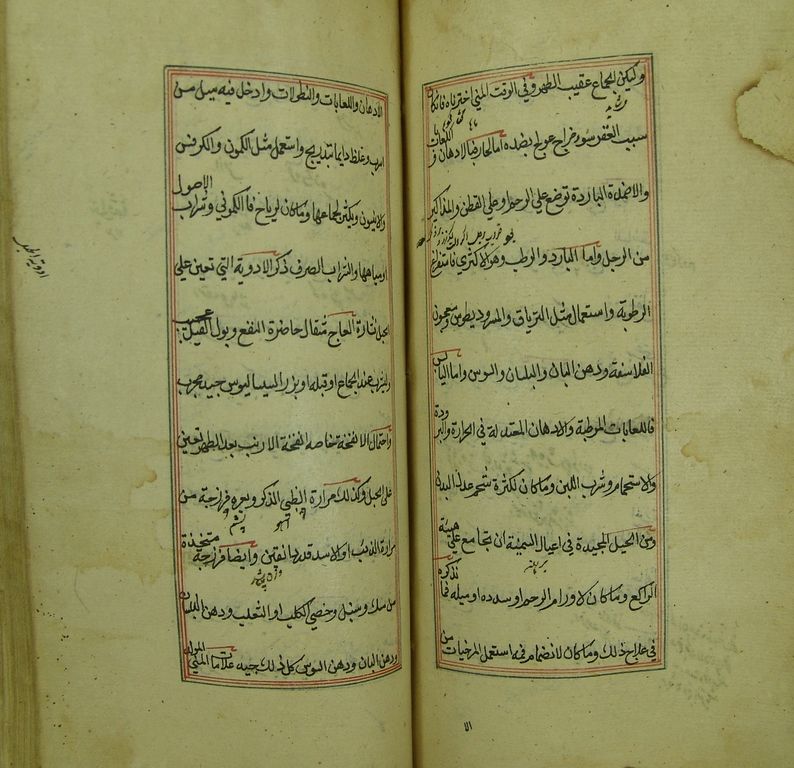 وليكن الجماع عقيب الطهر وفي الوقت الذي اخترناه فان كان
سبب العقر سوء مزاج عولج بضده اما الحار فبالادهان واللعابات
والاضمدة الباردة توضع علي الرحم او علي القطن والمذاكير
من الرجل واما البارد والرطب وهو الاكثري فاستفراغ
الرطوبة واستعمال مثل الترياق والمثروديطوس ومعجون
الفلاسفة ودهن البان والبلسان والسوسن واما اليابس
فاللعابات المرطبة والادهان المعتدلة في الحرارة والبرودة
والاستحمام وشرب اللبن وما كان لكثرة شحم عدل البدن
ومن الحيل المجيدة في احبال السمينة ان تجامع علي هيئة
الراكع وما كان لاورام الرحم او سدده او ميله فما نذكره
في علاج ذلك وما كان لانضمام فمه استعمل المرخيات من
الا
الادهان واللعابات والنطولات وادخل فيه ميل من
اسرب وغلظ دايما بتدريج واستعمل مثل الكمون والكرفس
والانيسون ويكثر جماعها وما كان لرياح فالكموني وشراب الاصول
او مياهها والشراب الصرف ذكر الادوية التي تعين علي
الحبل نشارة العاج مثقال حاضرة النفع وبول الفيل عجيب
يشرب عند الجماع او قبله او بزر السيساليوس جيد مجرب
واحتمال الانفحة خاصه انفحة الارنب بعد الطهر تعين
علي الحبل وكذلك مرارة الظبي الذكر وبعره فرزجة من
مرارة الذيب او الاسد قدر دانقين وايضا فرزجة متخذة
من مسك وسنبل وخصي الكلب او الثعلب ودهن البلسان
ودهن البان ودهن السوسن كل ذلك جيد علامات المني المولد
ادوية الحبل